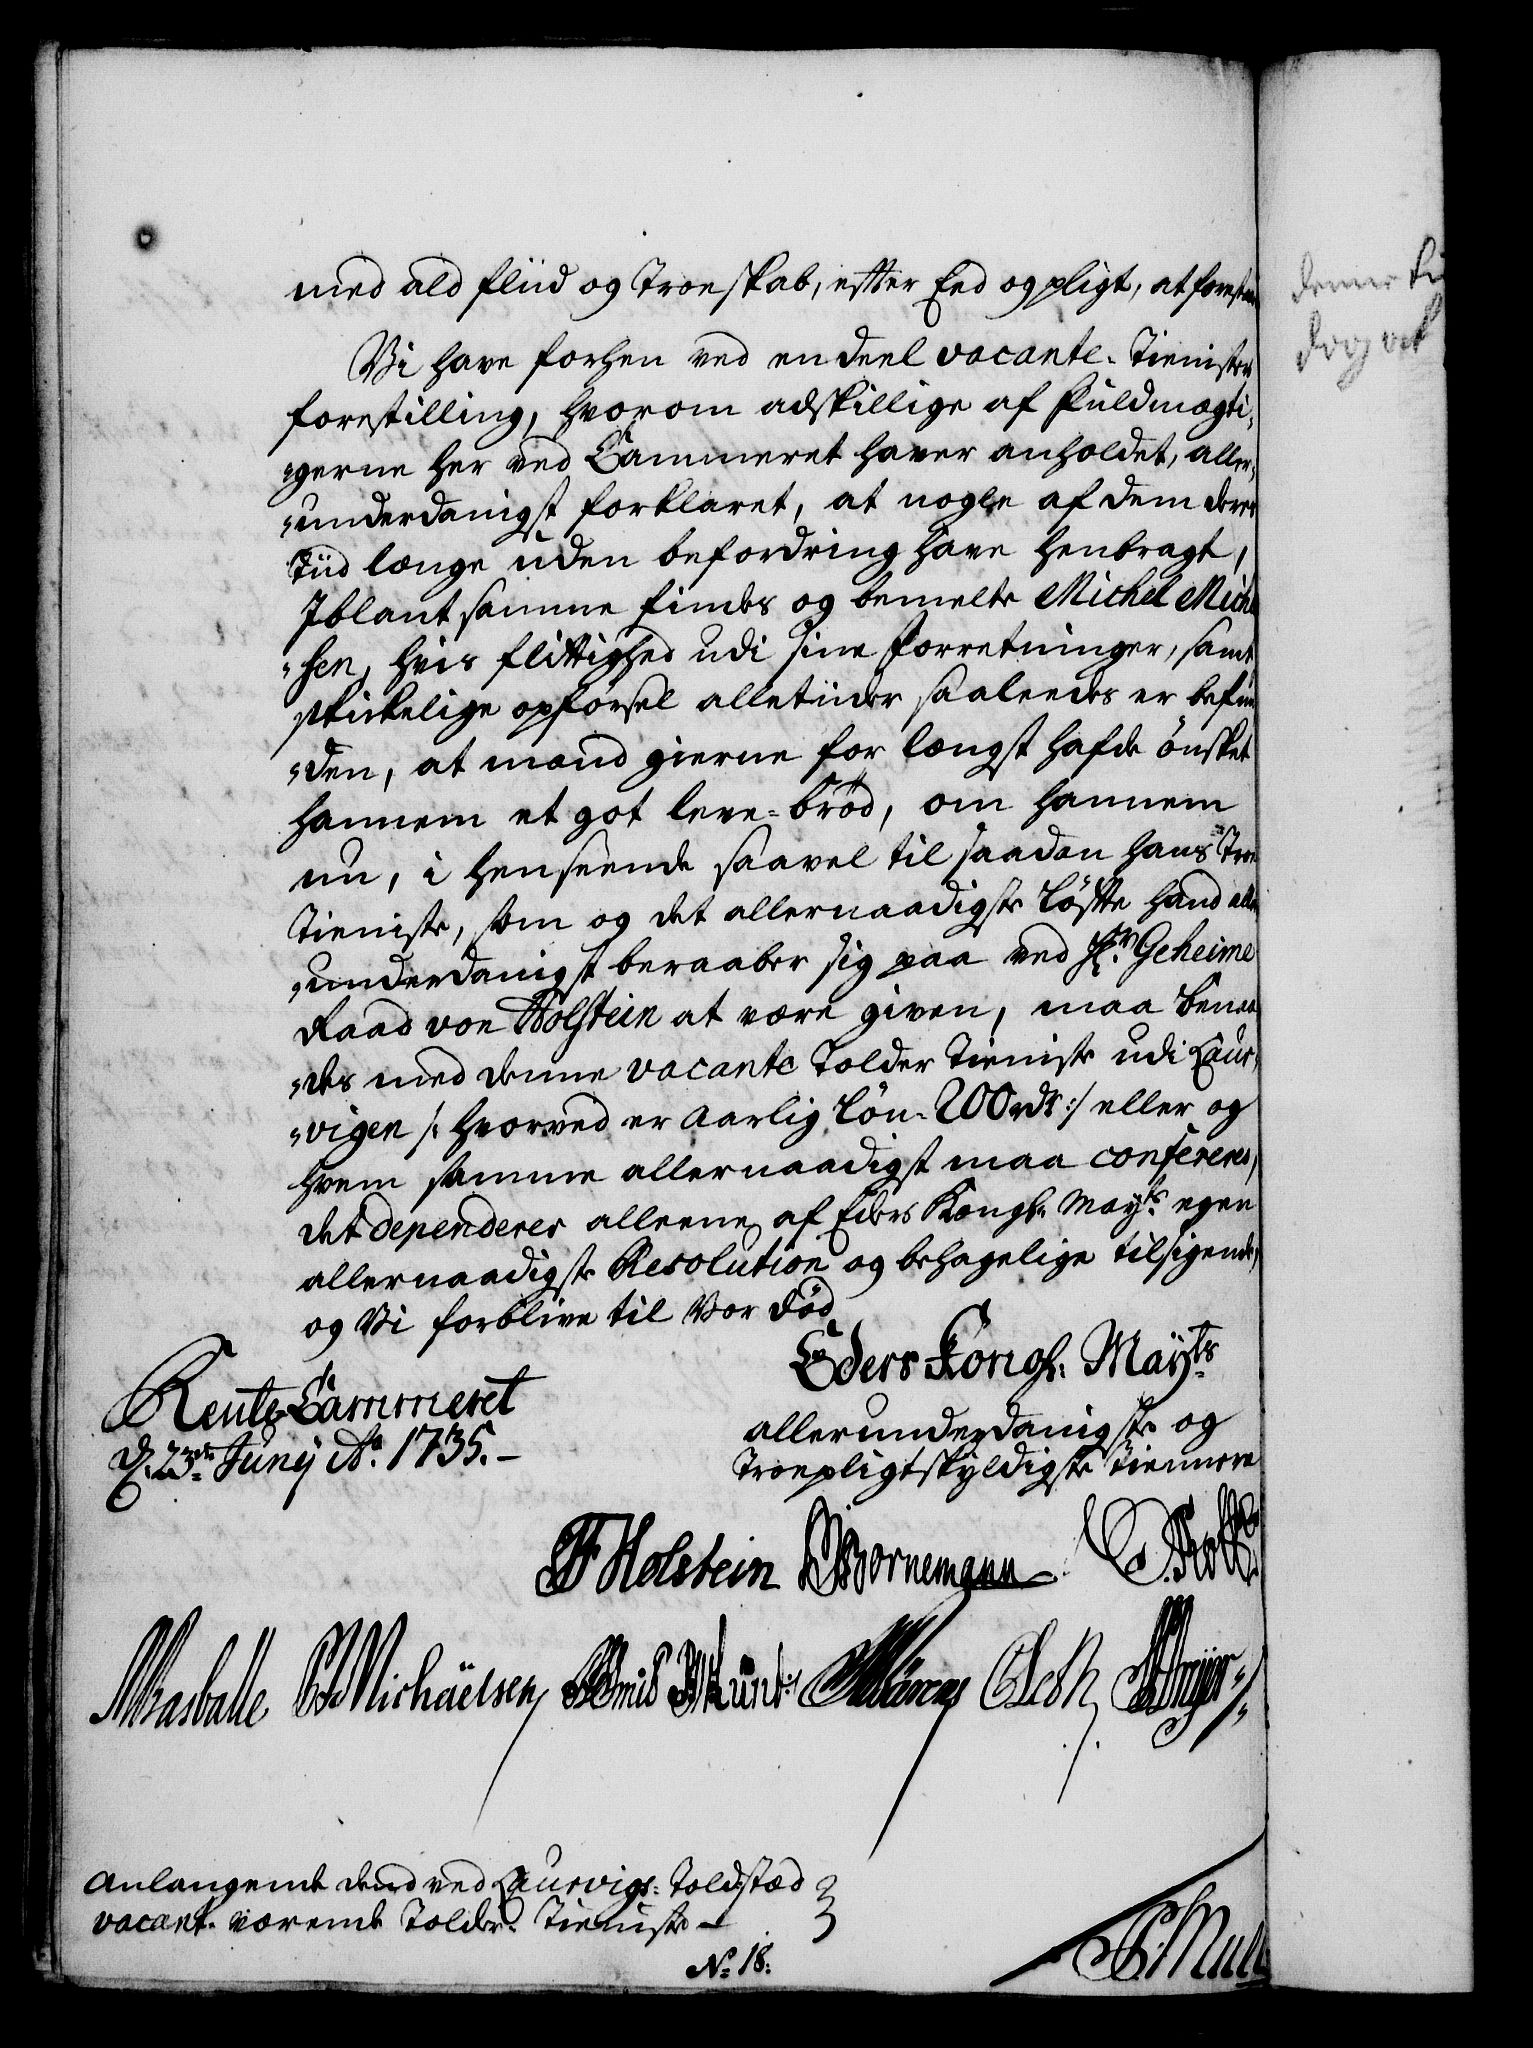 med ald fliid og Troeskab, efter Eed og pligt, at forestaae
Vi have forhen ved en deel vacante Tienisters
forestilling, hvorom adskillige af fuldmægti-
gerne her ved Cammeret haver anholdet, aller-
underdanigst forklaret, at nogle af dem derer
Tiid længe uden befordring have henbragt,
Iblant samme findes og bemelte Michel Miche
sen, hvis flittighed udi sine forretninger, samt
skikkelige opførsel alletiider saaleedes er befun
den, at mand gierne for længst hafde ønsket
hannem et got leve-brød, om hannem
nu, i henseende saavel til saadan hans Troe
Tieniste, som og det allernaadigste løfte hand aller
underdanigst beraaber sig paa ved Hr. Geheime
Raad von Holstein at være given, maa benaa
des med denne vacante Tolder Tieniste udi Laur-
vigen /: hvorved er aarlig løn 200 rdr :/ eller og
hvem samme allernaadigst maa confereres,
det dependerer alleene af Eders Kongl. Mayts. egen
allernaadigste Resolution og behagelige tilsigende,
og Vi forblive til Vor død
Eders Kongl. Mayts.
Rente Cammeret
d. 23de Junij Ao. 1735.-
allerunderdanigste og
Troepligtskyldigste Tiennere
F Holstein Bornemann
Michäelsen
Anlangende dend ved Laurvigs Toldstæd
vacant værende Tolder Tieniste -
No. 18.
denne
dog